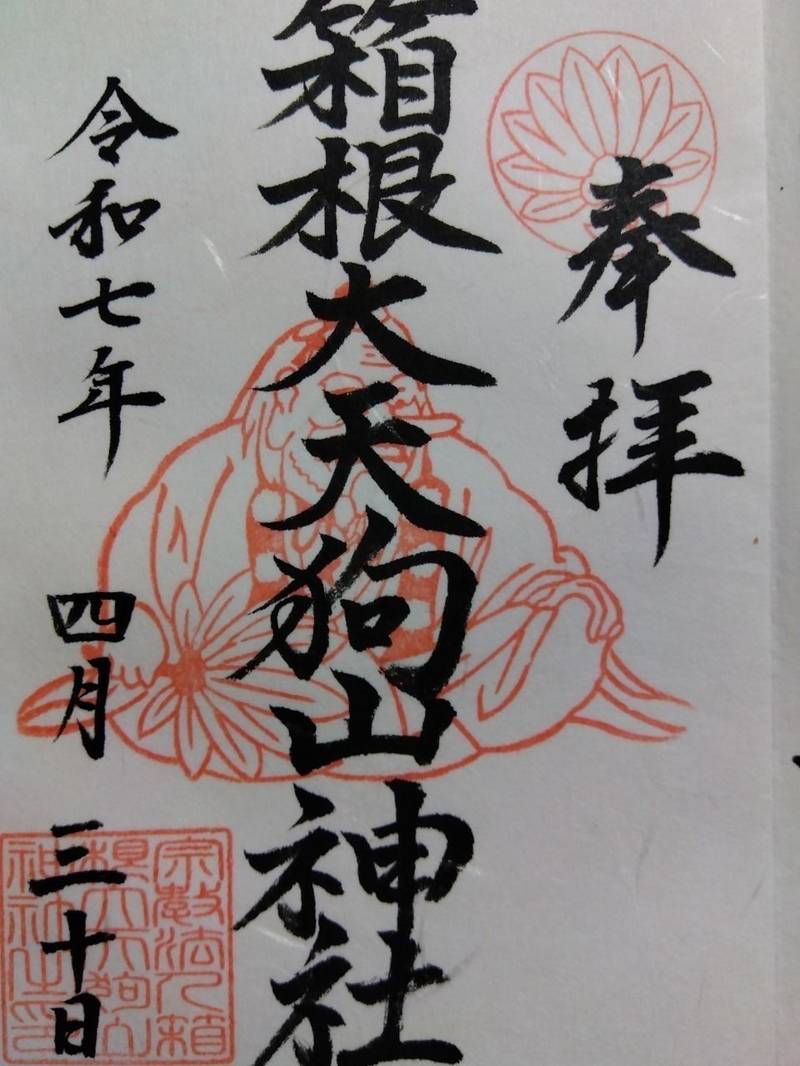 奉拝
箱根大天狗山神社
令和七年 四月 三十日
宗教法人箱
根大天狗山
神社之印